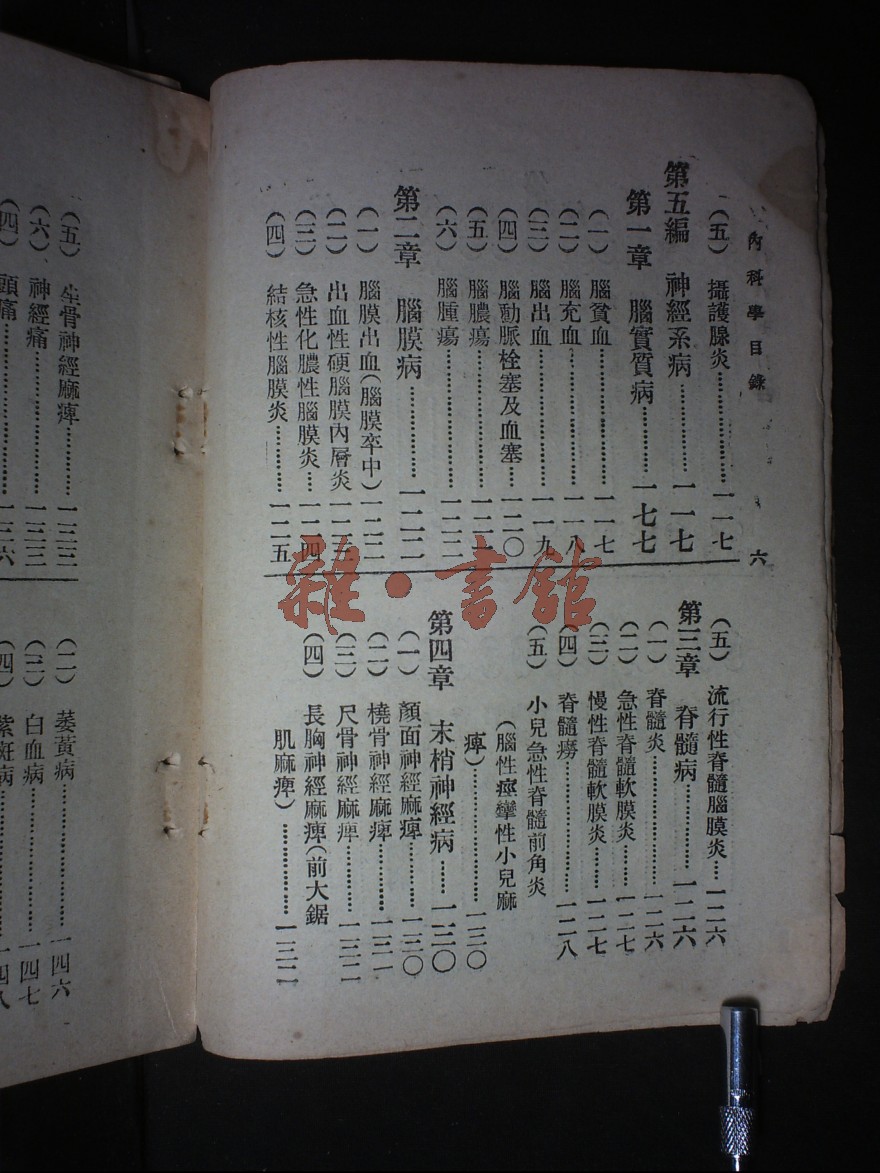 內科學目錄
六
（五） 攝護腺炎…………一一七
第五編 神經系病…………一一七
第一章 腦實質病…………一七七
（一） 腦貧血…………一一七
（二） 腦充血…………一一八
（三） 腦出血…………一一九
（四） 腦動脈栓塞及血塞…………一二〇
（五） 腦膿瘍…………一二一
（六） 腦腫瘍…………一二二
第二章 腦膜病…………一二二
（一） 腦膜出血（腦膜卒中）一二二
（二） 出血性硬腦膜內層炎 一二三
（三） 急性化膿性腦膜炎…一二四
（四） 結核性腦膜炎…………一二五
（五） 流行性脊髓腦膜炎…一二六
第三章 脊髓病…………一二六
（一） 脊髓炎…………一二六
（二） 急性脊髓軟膜炎…一二七
（三） 慢性脊髓軟膜炎…一二七
（四） 脊髓癆…………一二八
（五） 小兒急性脊髓前角炎
（腦性痙攣性小兒麻
痺）…………一三〇
第四章 末梢神經病……一三〇
（一） 顏面神經麻痺…………一三〇
（二） 橈骨神經麻痺…………一三一
（三） 尺骨神經麻痺…………一三二
（四） 長胸神經麻痺（前大鋸
肌麻痺）…………一三二
（五） 坐骨神經麻痺…………一三三
（六） 神經痛…………一三三
（四） 頭痛…………一三六
（二） 萎黃病…………一四六
（三） 白血病…………一四七
（四） 紫斑病…………一四八
雜·書館